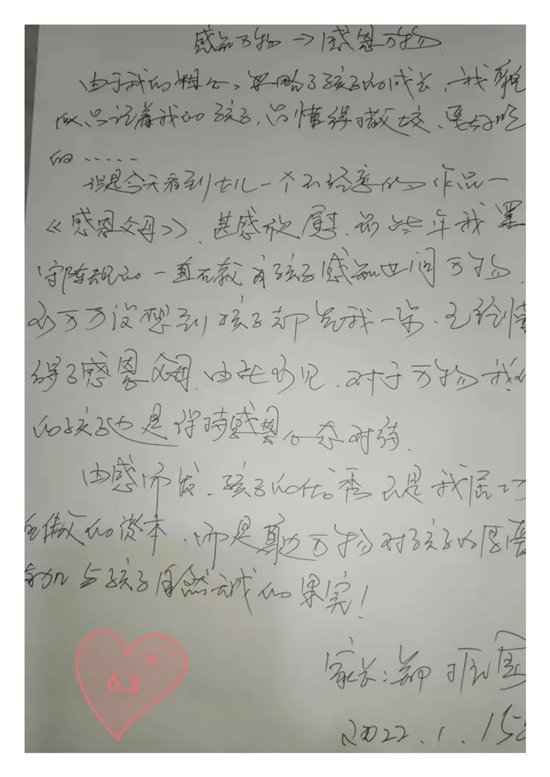 感知万物→感恩万物
由于我的粗心，忽略了孩子的成长，我
只记着我的孩子，只懂得
的……
今天看到女儿一个不经意的作品—
《感恩父母》，甚感欣慰，这些年我墨
守陈规的一直在教育孩子感知世间万物，
万万没想到孩子却先我一步，已经懂
得了感恩父母，由此可见，对于万物我们
的孩子也是保持感恩心态对待。
由感而发，孩子的优秀不是我居功
自傲的资本，而是身边万物对孩子的厚爱
与孩子自然天成的果实！
家长：
2022.1.15
6.3